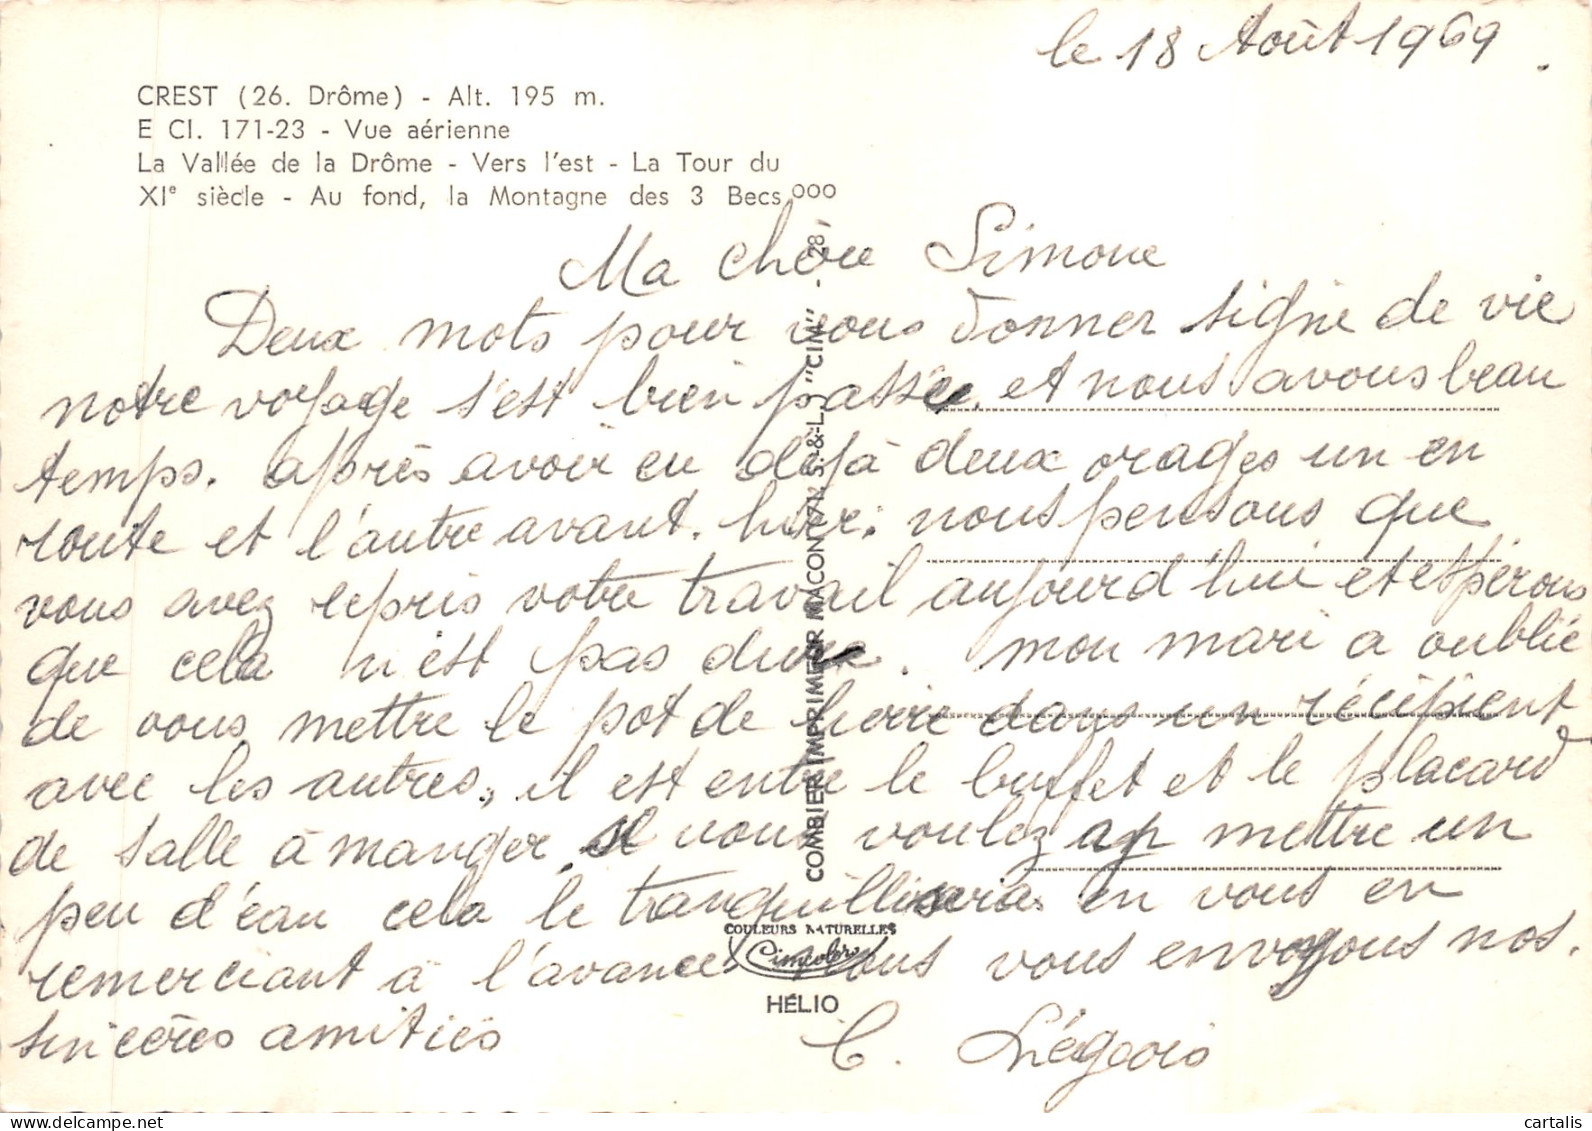 le 18 Août 1969.
CREST (26. Drôme) - Alt. 195 m.
E Cl. 171-23 - Vue aérienne
La Vallée de la Drôme - Vers l'est - La Tour du
XIe siècle - Au fond, la Montagne des 3 Becs ooo
Ma chère Simone
Deux mots pour vous donner signe de vie
notre voyage s'est bien passé. et nous avons beau
temps. après avoir eu déjà deux orages un en
route et l'autre avant. hier. nous pensons que
vous avez repris votre travail aujourd'hui et espérons
que cela n'est pas dur. mon mari a oublié
de vous mettre le pot de lierre dans un récipient
avec les autres, il est entre le buffet et le placard
de salle à manger, si vous voulez y mettre un
peu d'eau cela le tranquillisera. en vous en
remerciant à l'avance nous vous envoyons nos.
sincères amitiés
C. Liégeois
COMBIER IMPRIMEUR MACON (71) S.-&-L. "CIM" - 28
COULEURS NATURELLES
Cimcolor
HÉLIO
© cartalis
www.delcampe.net